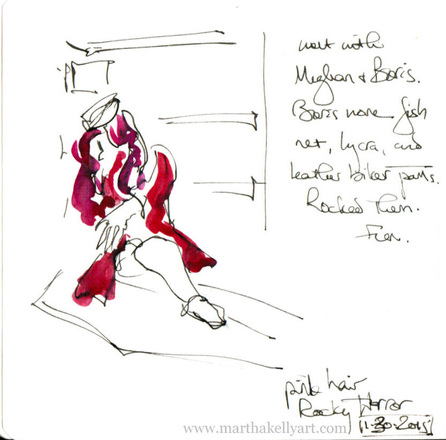 went with
Meghan + Boris.
Boris wore fish
net, lycra, and
leather biker pants.
Rocked them.
Fun.
pink hair
Rocky Horror
11-30-2015
www.marthakellyart.com